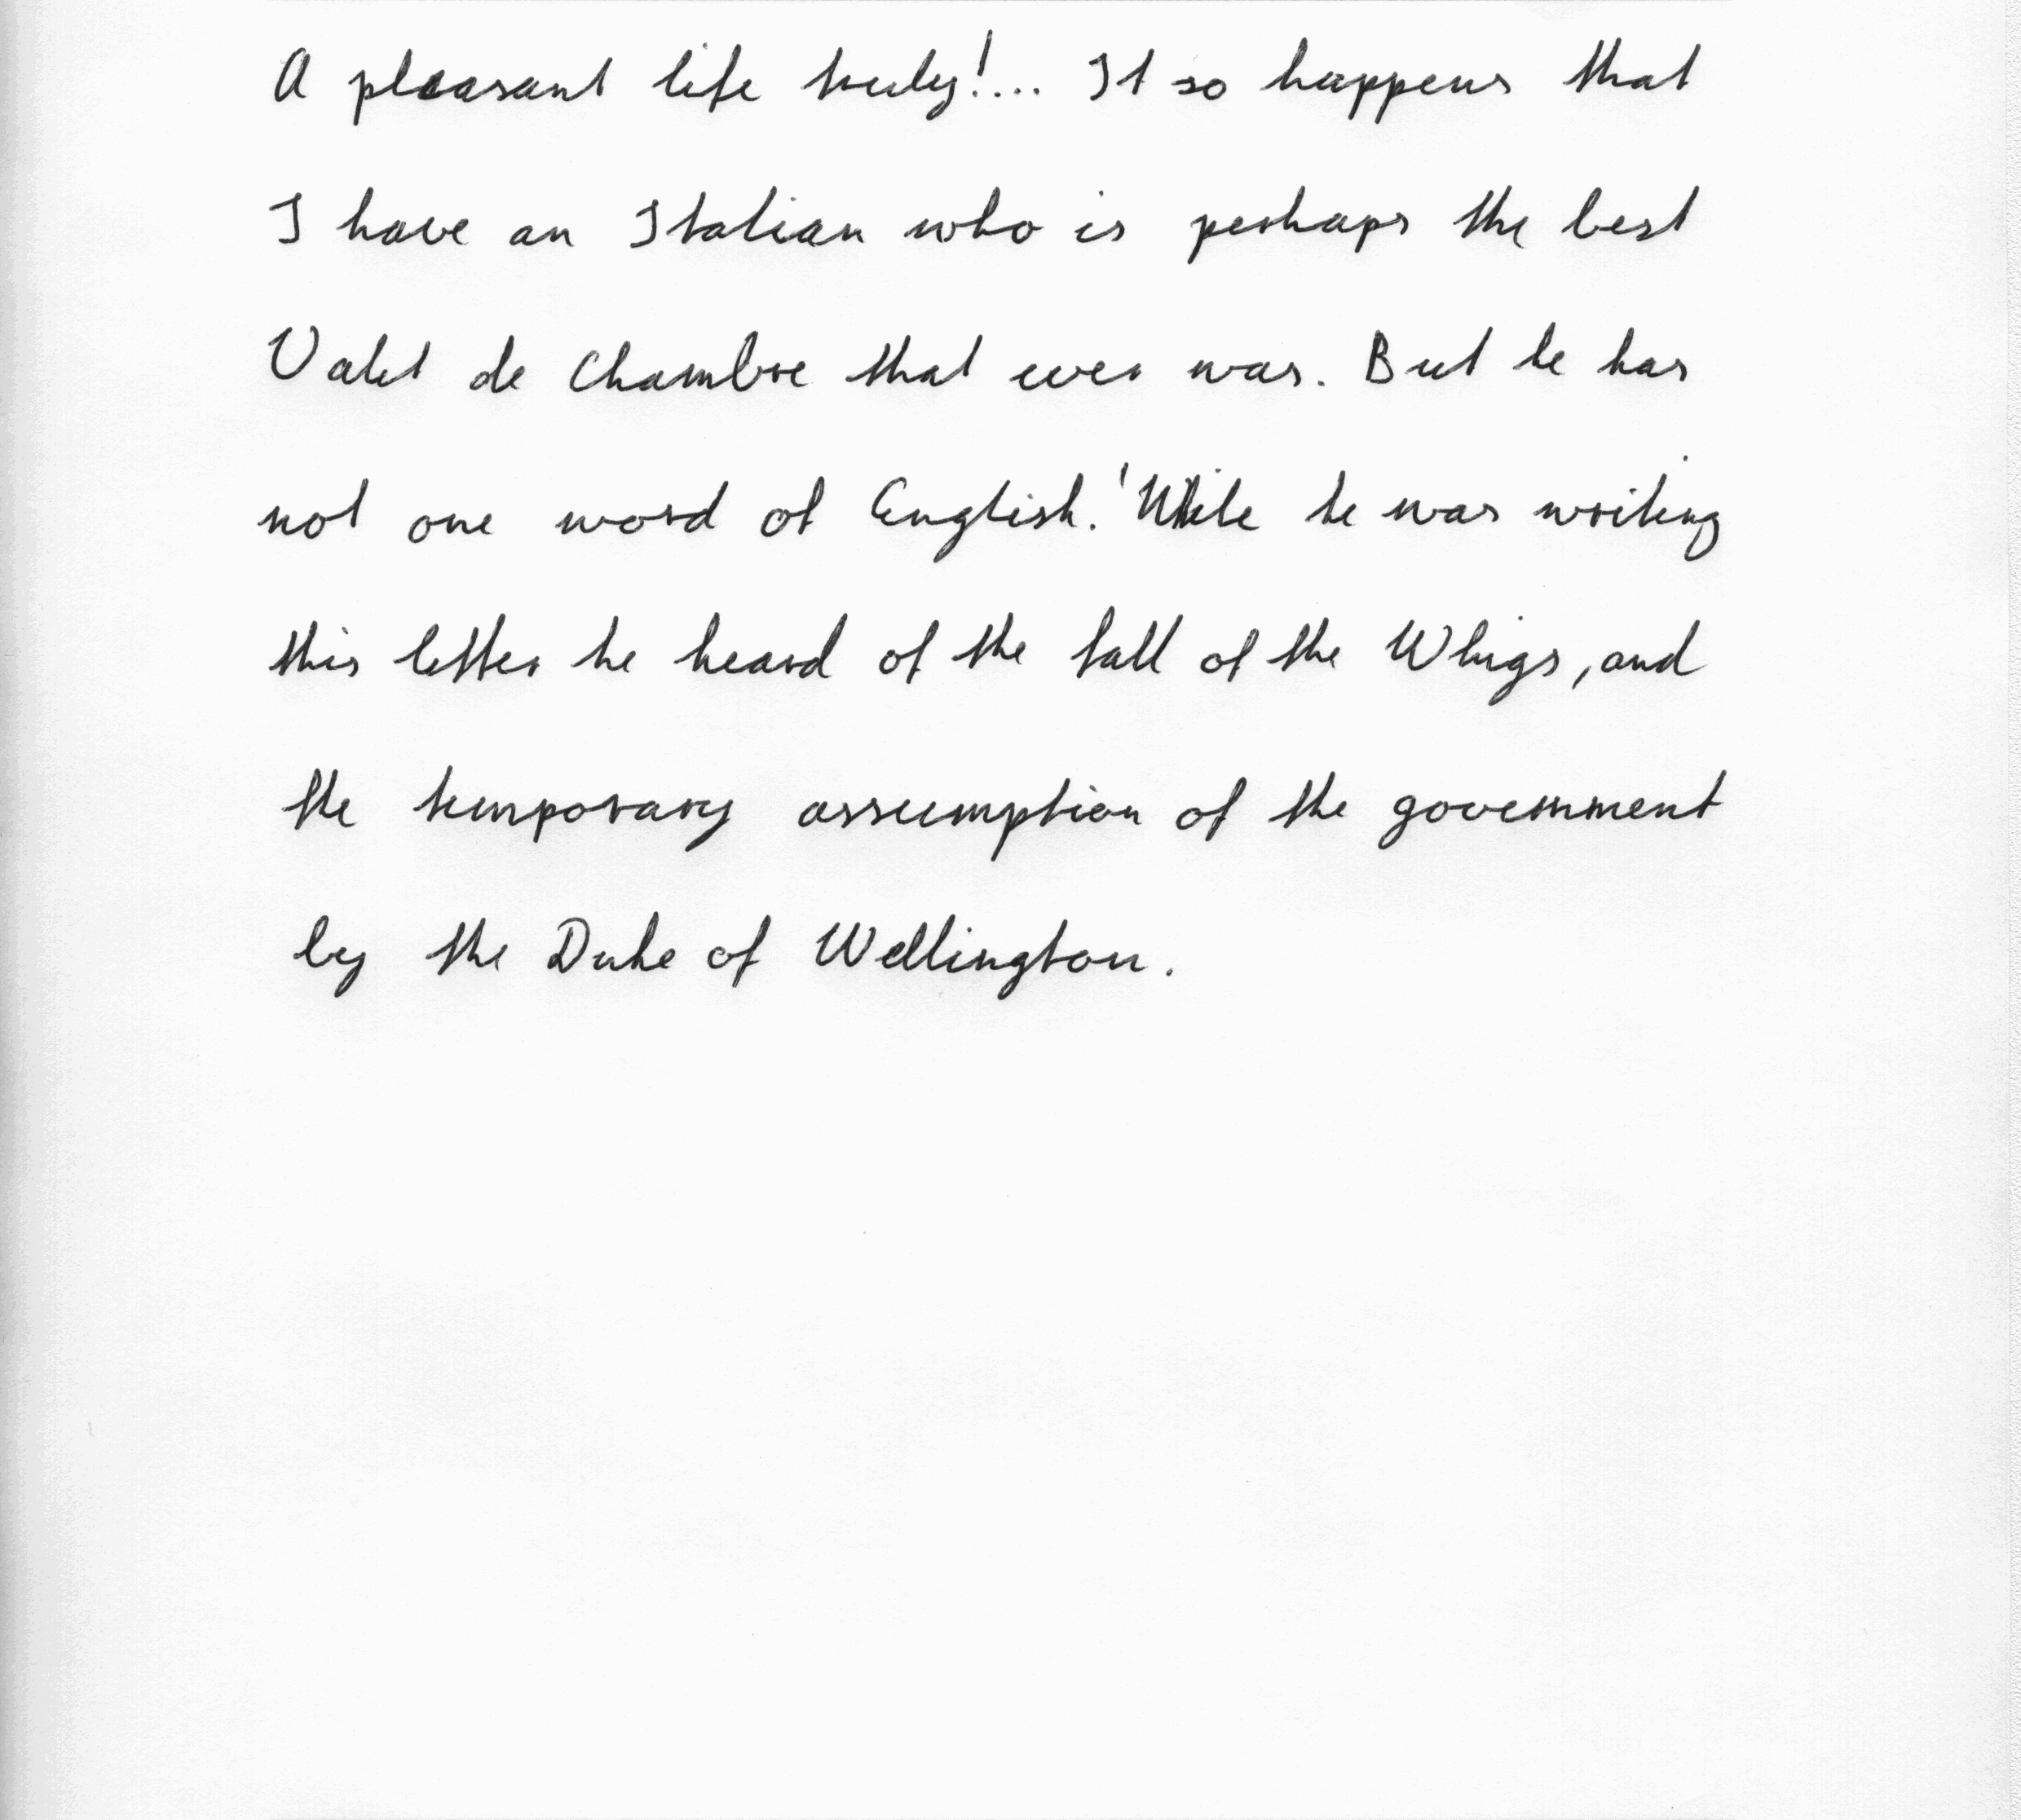 A pleasant life truly!... It so happens that
I have an Italian who is perhaps the best
Valet de Chambre that ever was. But he has
not one word of English.' While he was writing
this letter he heard of the fall of the Whigs, and
the temporary assumption of the government
by the Duke of Wellington.